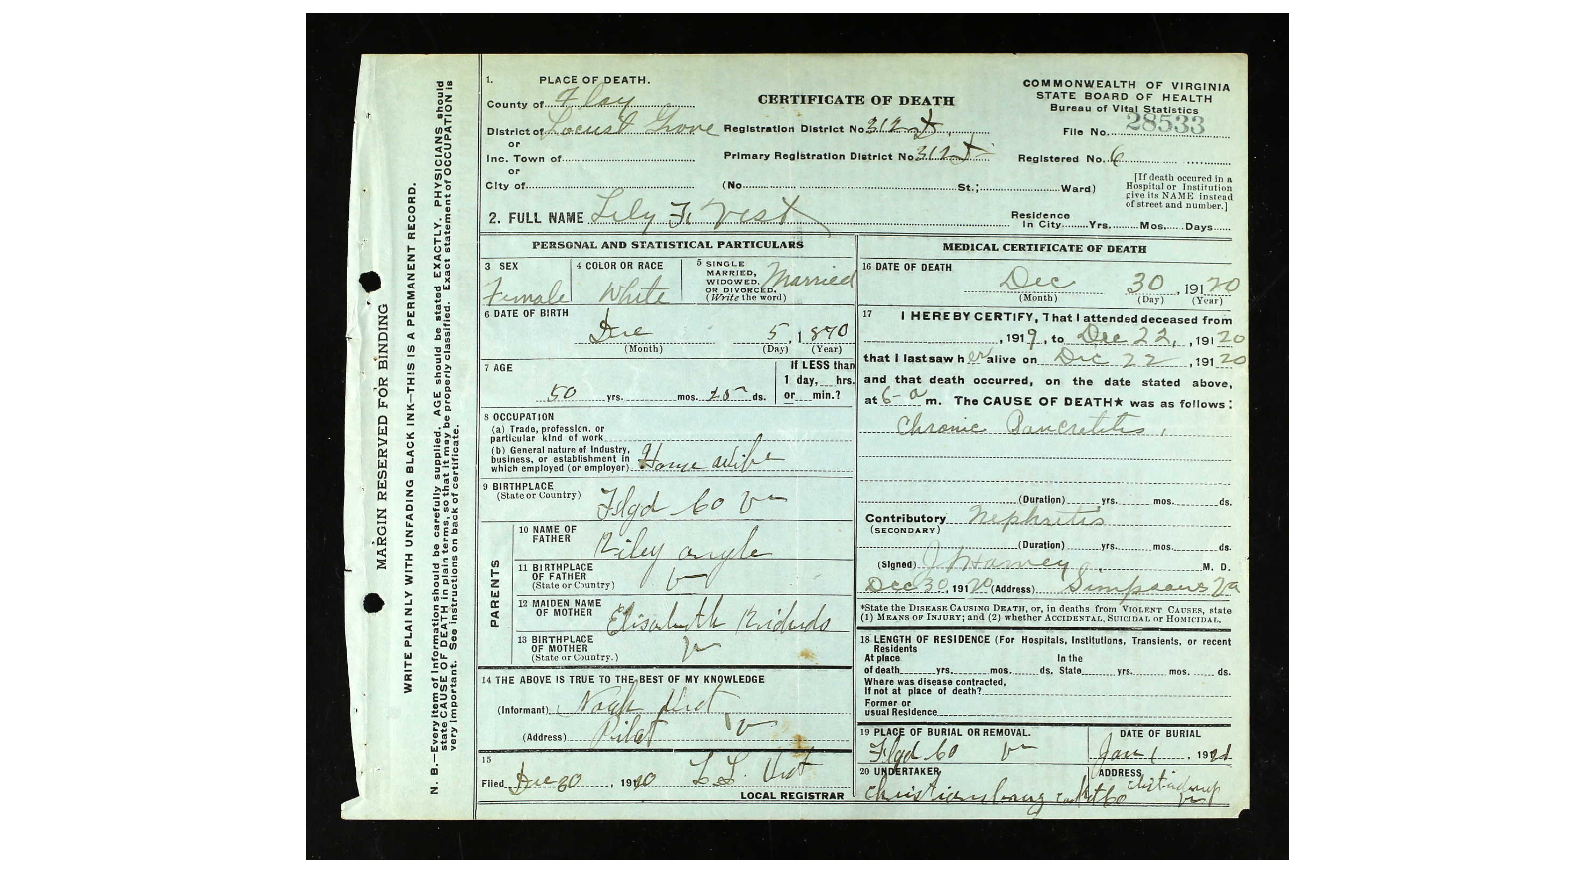 MARGIN RESERVED FOR BINDING
WRITE PLAINLY WITH UNFADING BLACK INK—THIS IS A PERMANENT RECORD.
N. B.—Every item of information should be carefully supplied. AGE should be stated EXACTLY. PHYSICIANS should
state CAUSE OF DEATH in plain terms, so that it may be properly classified. Exact statement of OCCUPATION is
very important. See instructions on back of certificate.
1. PLACE OF DEATH.
County of Floy
District of Locust Grove
or
Inc. Town of
or
City of
CERTIFICATE OF DEATH
Registration District No. 312
Primary Registration District No. 312
(No. St.; Ward)
COMMONWEALTH OF VIRGINIA
STATE BOARD OF HEALTH
Bureau of Vital Statistics
28533
File No.
Registered No. 6
[If death occured in a
Hospital or Institution
give its NAME instead
of street and number.]
2. FULL NAME Lily F. Vest
Residence
In City Yrs. Mos. Days
PERSONAL AND STATISTICAL PARTICULARS
3 SEX
Female
4 COLOR OR RACE
White
5 SINGLE
MARRIED,
WIDOWED,
OR DIVORCED.
(Write the word)
Married
6 DATE OF BIRTH
Dec 5, 1870
(Month) (Day) (Year)
7 AGE
50 yrs. mos. 25 ds.
If LESS than
1 day, hrs.
or min.?
8 OCCUPATION
(a) Trade, profession, or
particular kind of work
(b) General nature of Industry,
business, or establishment in
which employed (or employer) House wife
9 BIRTHPLACE
(State or Country) Floyd Co Va
PARENTS
10 NAME OF
FATHER Riley Angle
11 BIRTHPLACE
OF FATHER
(State or Country) Va
12 MAIDEN NAME
OF MOTHER Elisabeth
13 BIRTHPLACE
OF MOTHER
(State or Country.) Va
14 THE ABOVE IS TRUE TO THE BEST OF MY KNOWLEDGE
(Informant) Noah Vest
(Address) Pilot Va
15
Filed Dec 30, 1920 L. L. Vest
LOCAL REGISTRAR
MEDICAL CERTIFICATE OF DEATH
16 DATE OF DEATH
Dec 30, 19120
(Month) (Day) (Year)
17 I HEREBY CERTIFY, That I attended deceased from
, 1919, to Dec 22, , 19120
that I last saw her alive on Dec 22, 19120
and that death occurred, on the date stated above,
at 6-a m. The CAUSE OF DEATH★ was as follows:
Chronic Pancretitis,
(Duration) yrs. mos. ds.
Contributory Nephritis
(SECONDARY)
(Duration) yrs. mos. ds.
(Signed) M. D.
Dec 30, 19120 (Address) Simpsons Va
*State the DISEASE CAUSING DEATH, or, in deaths from VIOLENT CAUSES, state
(1) MEANS OF INJURY; and (2) whether ACCIDENTAL, SUICIDAL or HOMICIDAL.
18 LENGTH OF RESIDENCE (For Hospitals, Institutions, Transients, or recent
Residents
At place In the
of death yrs. mos. ds. State yrs. mos. ds.
Where was disease contracted,
If not at place of death?
Former or
usual Residence
19 PLACE OF BURIAL OR REMOVAL.
Floyd Co Va
DATE OF BURIAL
Jan 1, 1921
20 UNDERTAKER
Christiansburg
ADDRESS